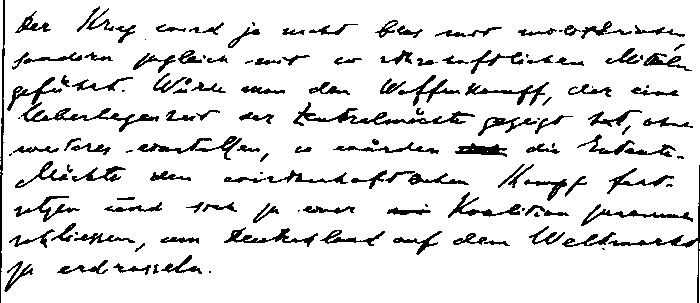 Der Krieg wird ja nicht blos mit militärischen,
sondern zugleich mit wirtschaftlichen Mitteln
geführt. Würde man den Waffenkampf, der eine
Ueberlegenheit der Zentralmächte gezeigt hat, ohne
weiteres einstellen, so würden die Entente-
Mächte den wirtschaftlichen Kampf fort-
setzen und sich zu einer Koalition zusammen
schliessen, um Deutschland auf dem Weltmarkt
zu erdrosseln.